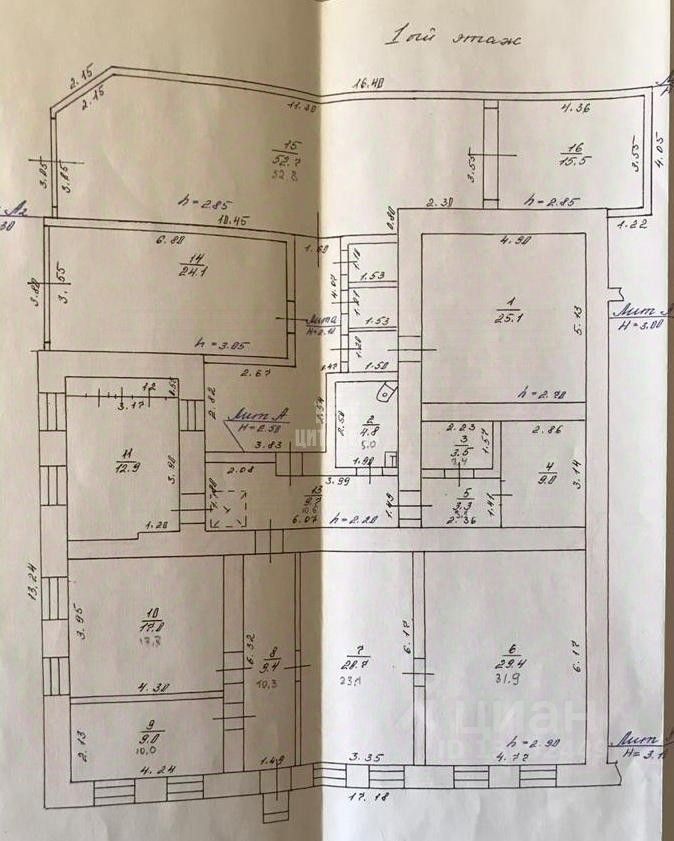 1 ый этаж
2.15
2.15
16.40
11.30
4.36
15
52.7
52.8
16
15.5
3.55
3.55
4.05
3.85
3.85
h = 2.85
h = 2.85
2.30
10.45
2.80
1.22
6.80
14
24.1
4.07
1.53
1.53
1.20
1.50
4.90
1
25.1
5.13
3.55
h = 3.05
Лит А
H = 2.50
h = 2.70
2.67
2.82
3.83
12
3.17
11
12.9
3.90
1.20
2.08
2
4.8
5.0
2.50
1.90
3.99
2.23
3
3.5
1.57
2.86
4
9.0
3.14
5
3.3
1.41
2.36
1.49
13
6.07
h = 2.20
13.24
3.95
10
17.0
4.30
6.32
8
9.4
10.3
7
20.7
23.1
6.17
6
29.4
31.9
6.17
2.13
9
9.0
10.0
4.24
1.49
3.35
h = 2.90
4.72
17.18
ЦИАН